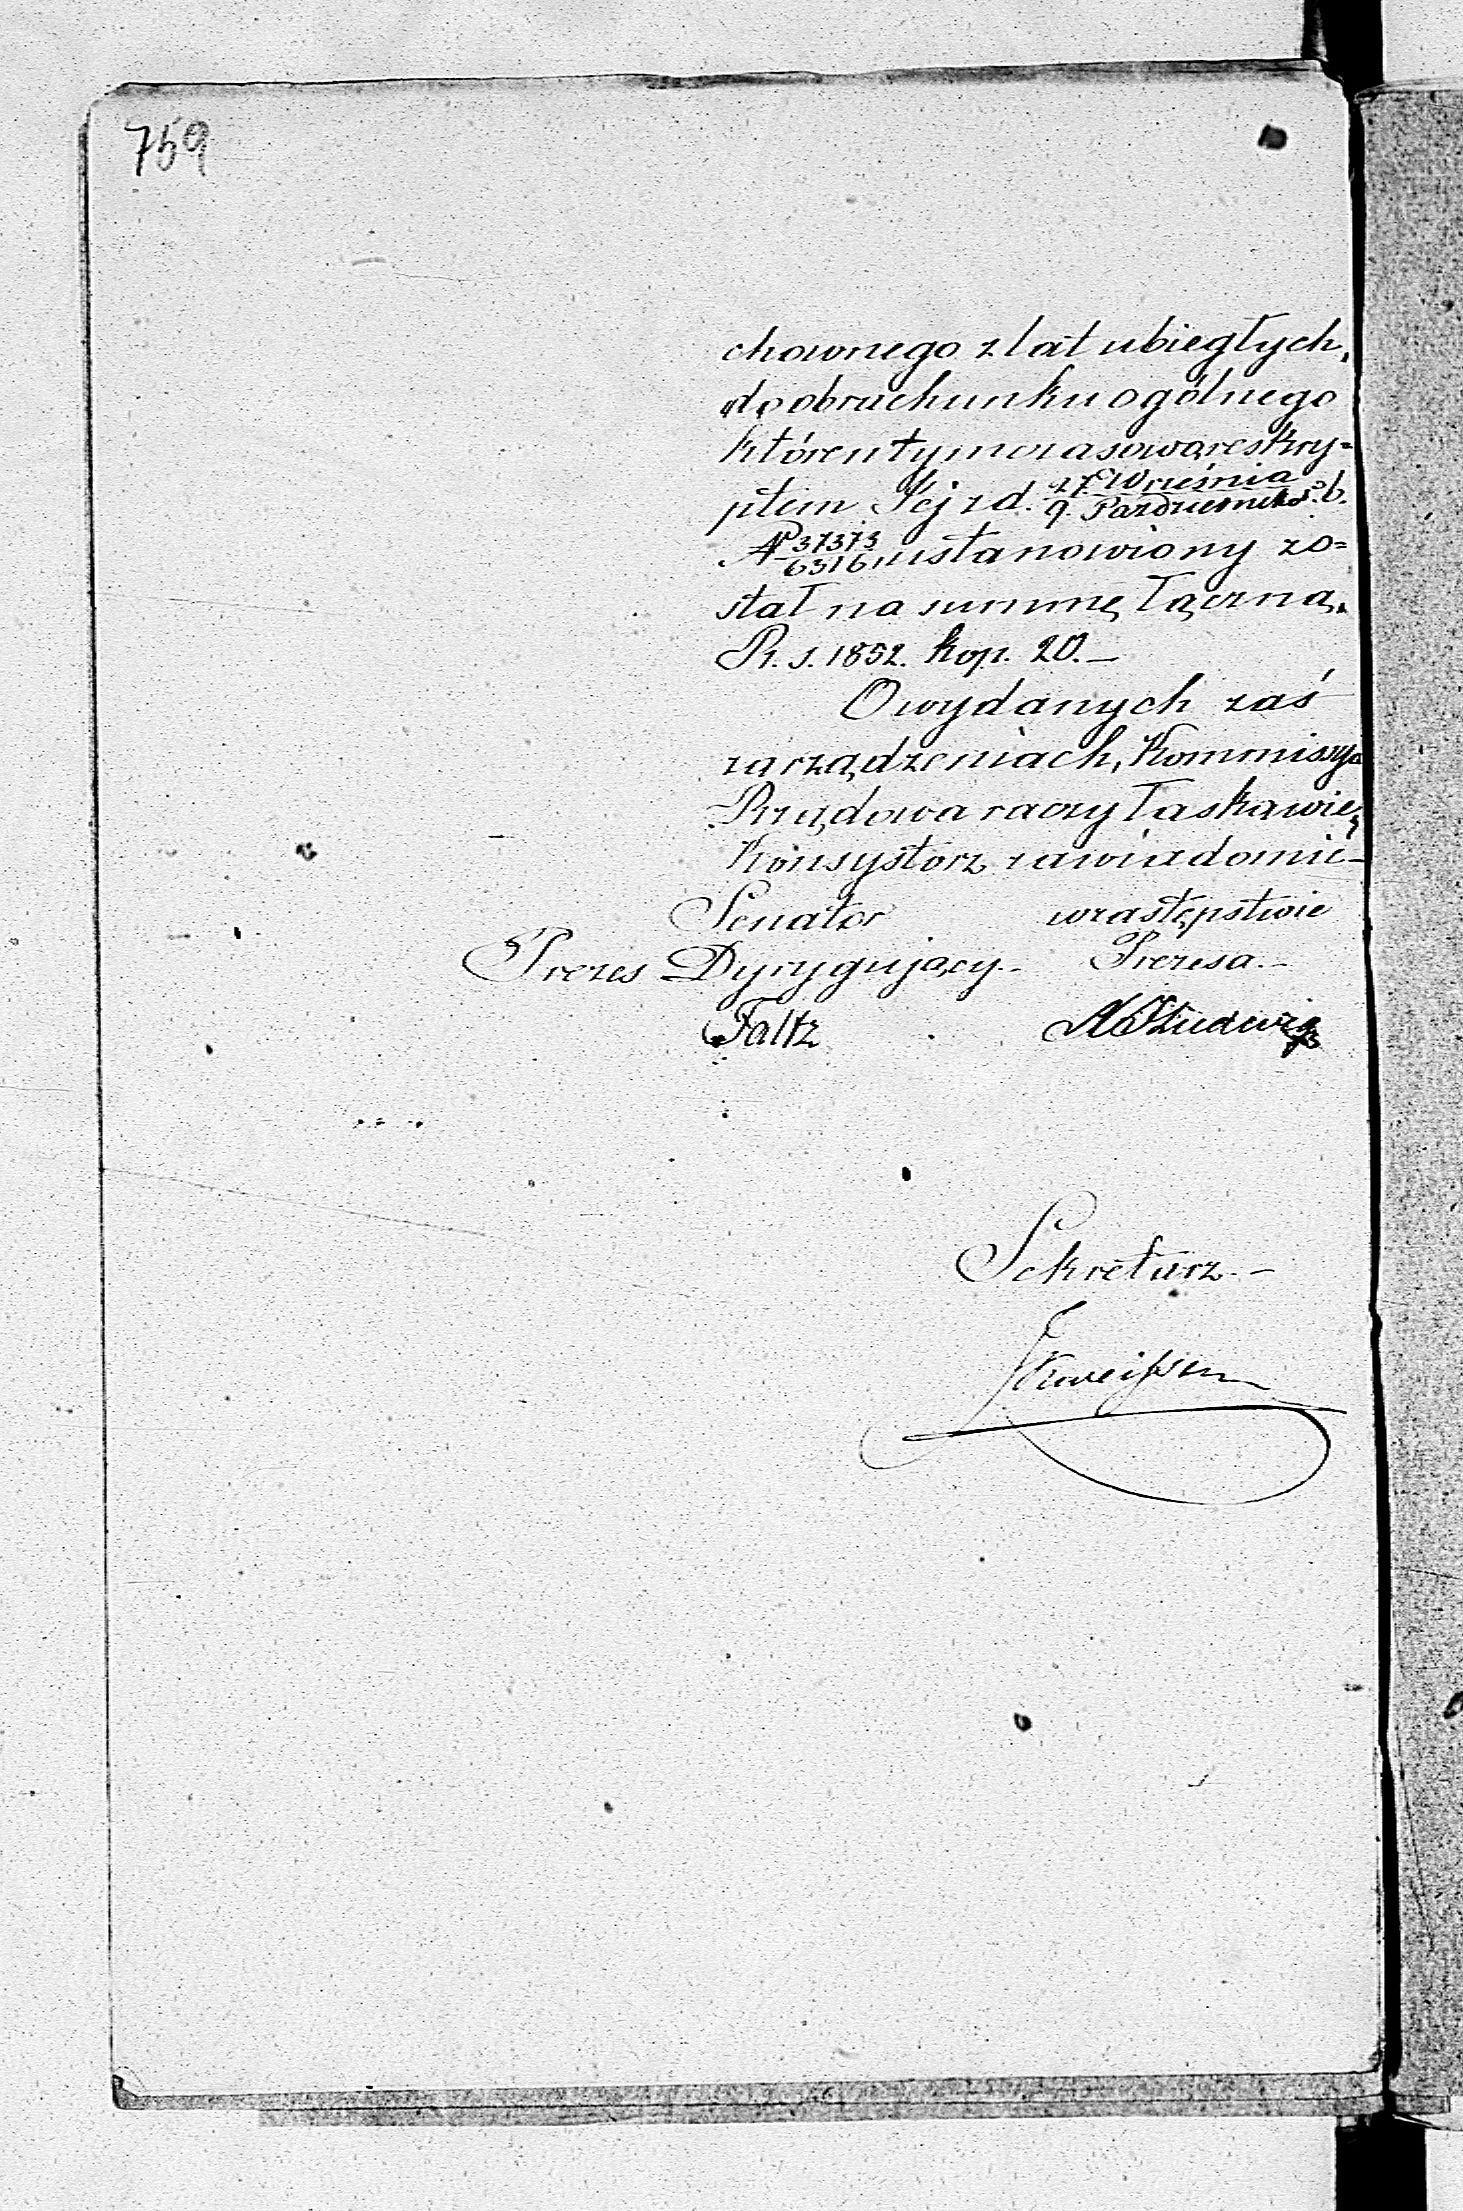 759
chownego z lat ubiegłych,
do obrachunku ogólnego
któren tymczasowo reskry=
ptem Jej z d. 27. Września / 9. Października r. b.
№ 37373/6316 ustanowiony zo=
stał na summę łączną
R. s. 1852. kop. 20.—
O wydanych zaś
zarządzeniach, Kommissya
Rządowa raczy łaskawie
Konsystorz zawiadomić—
Senator w zastępstwie
Prezes Dyrygujący.— Prezesa.—
Faltz Ludwig
Sekretarz.—